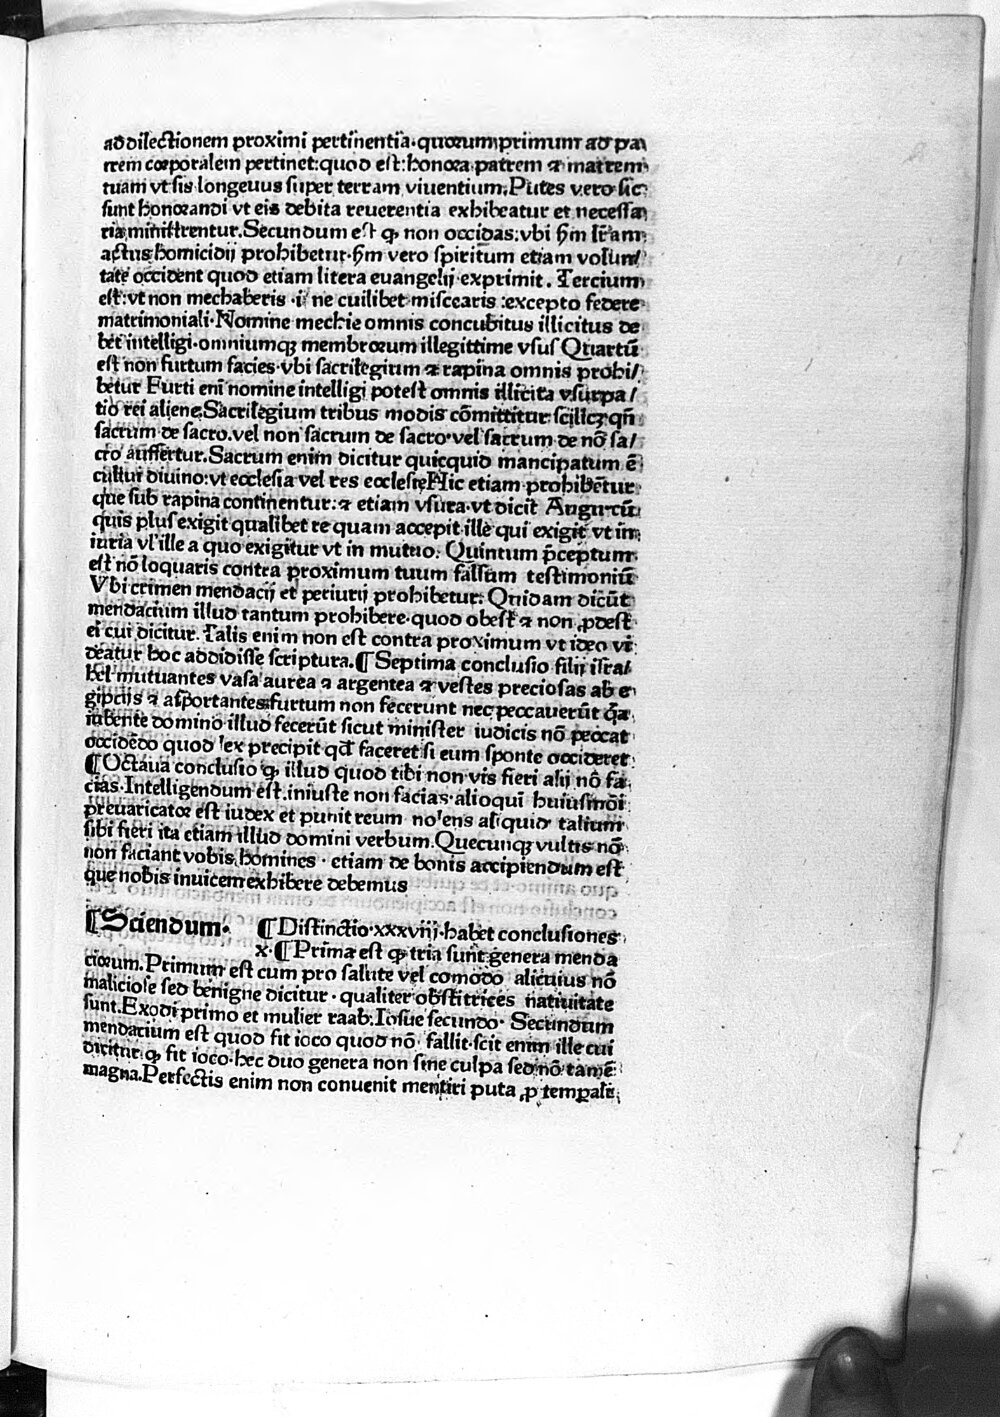 ad dilectionem proximi pertinentia·quorum primum ad pa
trem corporalem pertinet:quod est:honora patrem ⁊ matrem
tuam vt sis longeuus super terram viuentium.Pātes vero sic
sunt honorandi vt eis debita reuerentia exhibeatur et necessa
ria ministrentur.Secundum est ꝙ non occidas:vbi ẜm lr̄am
actus homicidij prohibetur·ẜm vero spiritum etiam volun/
tate occident quod etiam litera euangelij exprimit. Tercium
est:vt non mechaberis ·i· ne cuilibet miscearis :excepto federe
matrimoniali·Nomine mechie omnis concubitus illicitus de
bet intelligi·omniumqꝫ membrorum illegittime vsus Quartū
est non furtum facies·vbi sacrilegium ⁊ rapina omnis prohi/
betur Furti eni nomine intelligi potest omnis illicita vsurpa/
tio rei aliene.Sacrilegium tribus modis cōmittitur scilicꝫ qn̄
sacrum de sacro.vel non sacrum de sacro·vel sacrum de nō sa/
cro auffertur.Sacrum enim dicitur quicquid mancipatum ē
cultui diuino:vt ecclesia vel res ecclesie Hic etiam prohibētur
que sub rapina continentur:⁊ etiam vsura·vt dicit Augu·cū
quis plus exigit qualibet re quam accepit ille qui exigit vt in
iuria vl' ille a quo exigitur vt in mutuo. Quintum p̄ceptum
est nō loquaris contra proximum tuum falsum testimoniū
Vbi crimen mendacij et periurij prohibetur. Quidam dicūt
mendacium illud tantum prohibere·quod obest ⁊ non ꝓdest
ei cui dicitur. Talis enim non est contra proximum vt ideo vi
deatur hoc addidisse scriptura.¶ Septima conclusio filij isra/
hel mutuantes vasa aurea ⁊ argentea ⁊ vestes preciosas ab e
gipcijs ⁊ asportantes furtum non fecerunt nec peccauerūt q̄a
iubente domino illud fecerūt sicut minister iudicis nō peccat
occidēdo quod lex precipit qd̄ faceret si eum sponte occideret
¶ Octaua conclusio ꝙ illud quod tibi non vis fieri alij nō fa
cias·Intelligendum est iniuste non facias·alioqui huiusmōi
preuaricator est iudex et punit reum nolens aliquid talium
sibi fieri ita etiam illud domini verbum.Quecunqꝫ vultis nō
non faciant vobis homines · etiam de bonis accipiendum est
que nobis inuicem exhibere debemus
¶ Sciendum. ¶ Distinctio·xxxviij·habet conclusiones
x·¶ Prima est ꝙ tria sunt genera menda
ciorum.Primum est cum pro salute vel comodo alicuius nō
maliciose sed benigne dicitur · qualiter obstitrices natiuitate
sunt.Exodi primo et mulier raab:Iosue secundo· Secundum
mendacium est quod fit ioco quod nō fallit·scit enim ille cui
dicitur ꝙ fit ioco·hec duo genera non sine culpa sed nō tamē
magna.Perfectis enim non conuenit mentiri puta ꝓ temꝑali